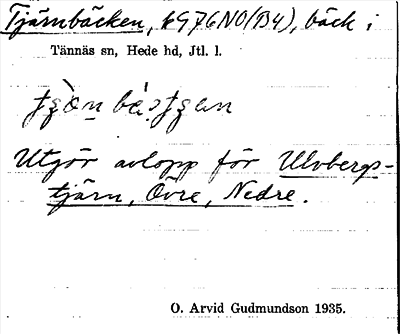 Tjärnbäcken, 6976NO(B4), bäck i
Tännäs sn, Hede hd, Jtl. l.
Utgör avlopp för Ulvbergs-
tjärn, Övre, Nedre.
O. Arvid Gudmundson 1935.